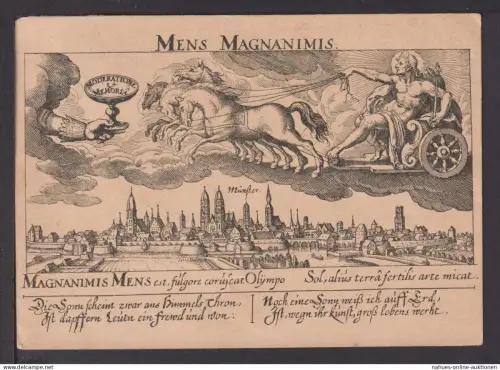 MENS MAGNANIMIS.
MODERATIONE
ET
MEMORIA
Münster.
MAGNANIMIS MENS est fulgore corúscat Olympo
Sol, alius terrâ fertilis arte micat.
Die Sonn scheint zwar aus Himmels Thron,
Ist dapffern Leútn ein frewd únd won:
Noch eine Sonn weiß ich aúff Erd,
Ist, wegn ihr kúnst, groß lobens werht.
© nahues-online-auktionen
www.delcampe.net